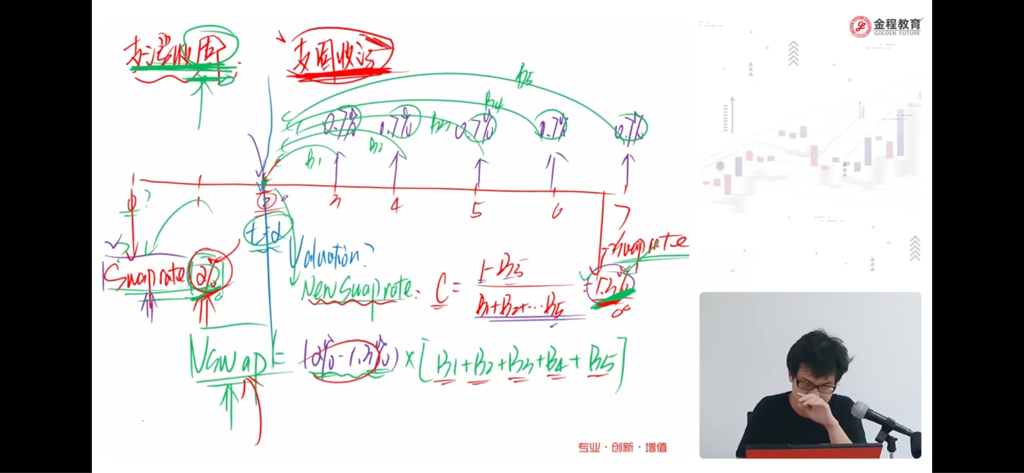 金程教育
GOLDEN FUTURE
支浮收固
支固收浮
B5
B4
0.7% 0.7% 0.7% 0.7% 0.7%
B1 B2 B3
0 ? 1 2 3 4 5 6 7
t=2
Valuation?
Swap rate 2%
New swap rate: C = 1-B5 / B1+B2+...B5 = 1.3%
swap rate
Vswap = (2%-1.3%) × [B1+B2+B3+B4+B5]
专业·创新·增值